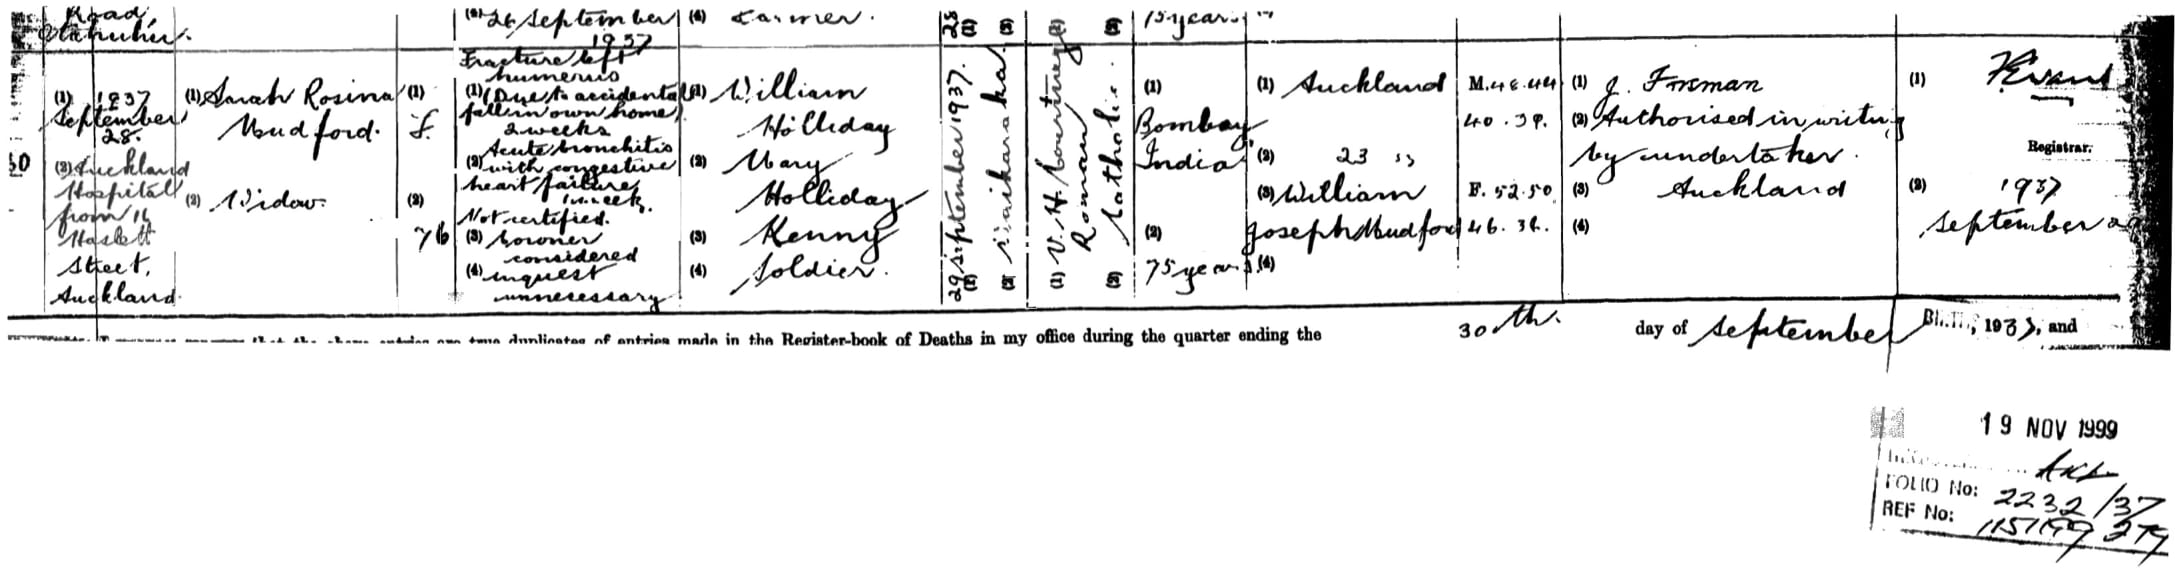 Road,
Otahuhu.
26 September
1937
(4) Farmer.
28
(1)
(3)
(2)
(3)
75 years
50
(1) 1937
September
28.
(2) Auckland
Hospital
from 16
Haslett
Street,
Auckland.
(1) Sarah Rosina
Mudford.
(2) Widow.
(1)
f.
(2)
76
Fracture left
humerus
(1) (Due to accidental
fall in own home)
2 weeks
Acute bronchitis
(2) with congestive
heart failure
1 week.
Not certified.
(3) Coroner
considered
(4) inquest
unnecessary
(1) William
Holliday
(2) Mary
Holliday
(3) Kenny
(4) Soldier.
29 September 1937.
(1)
(2) Waikaraka.
(1) V. H.
Roman
(2) Catholic.
(1)
Bombay
India
(2)
75 years
(1) Auckland
(2) 23
(3) William
Joseph Mudford
(4)
M. 48. 44
40. 39.
F. 52. 50
46. 36.
(1) J. Forsman
(2) Authorised in writing
by undertaker.
(3) Auckland
(4)
(1)
Registrar.
(2) 1937
September
true duplicates of entries made in the Register-book of Deaths in my office during the quarter ending the 30th. day of September 1937, and
19 NOV 1999
AKL
FOLIO No: 2232/37
REF No: